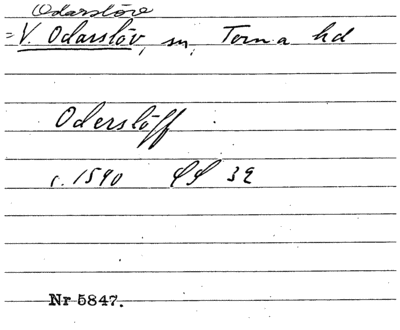 Odarslöv
= V. Odarslöv, sn, Torna hd
Oderslöff
c. 1590 SS 32
Nr 5847.